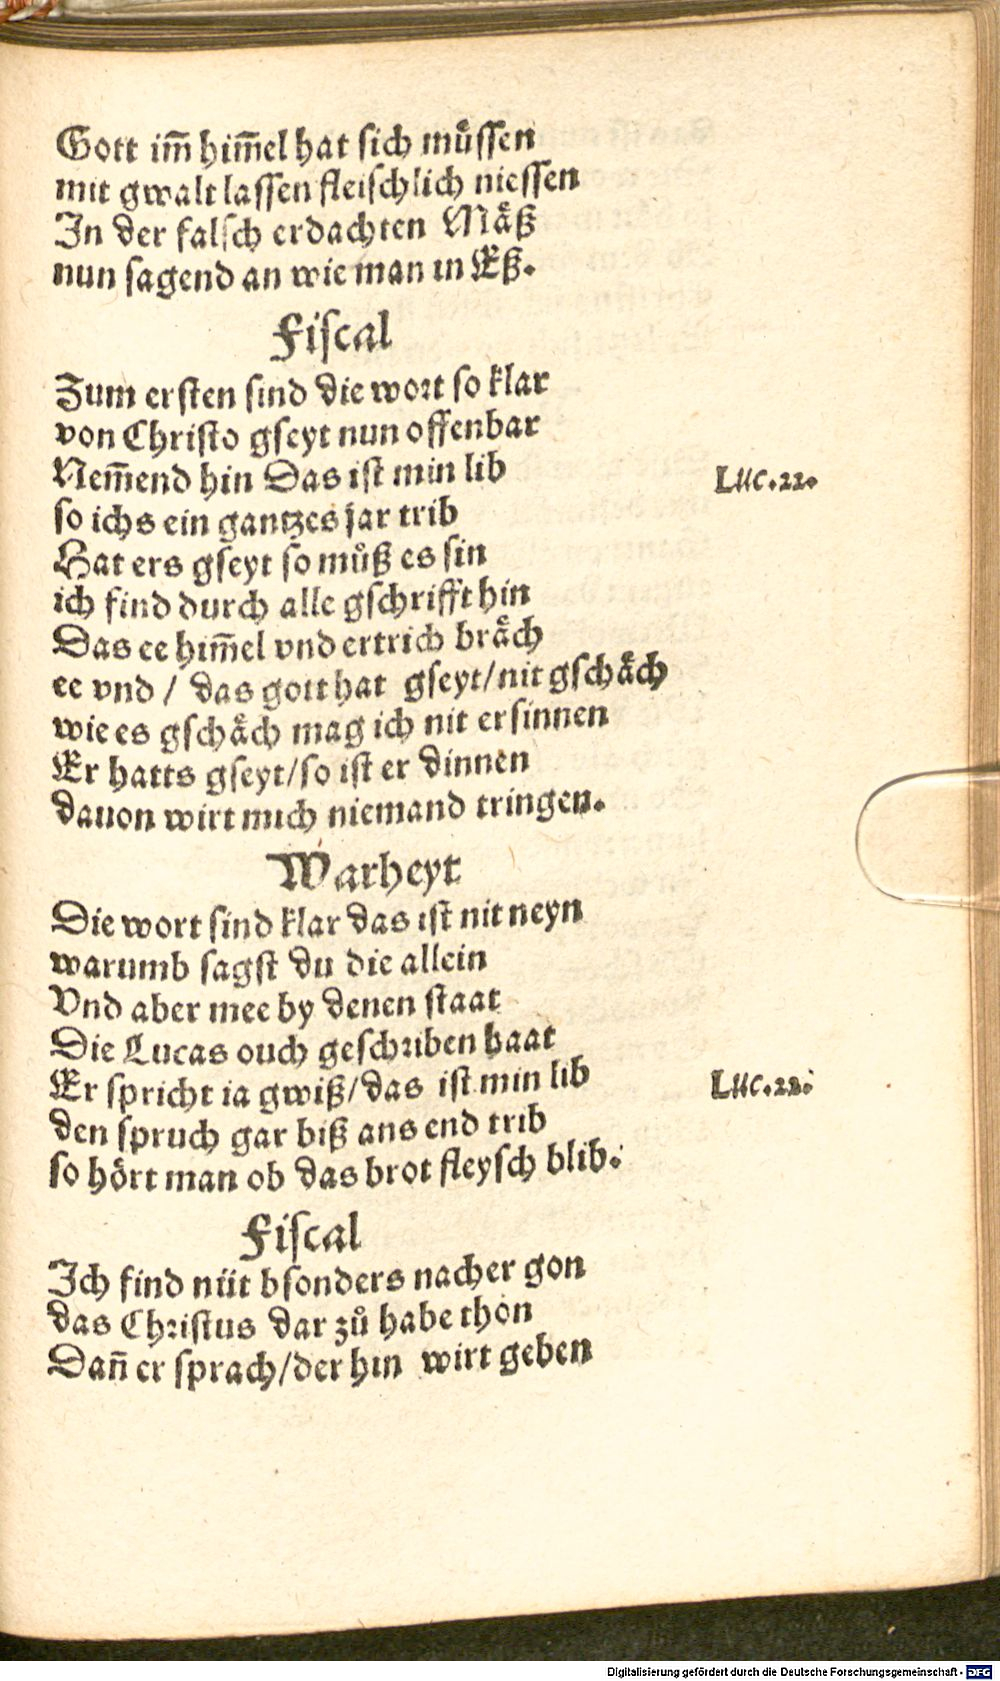 Gott im̄ him̄el hat sich muͤssen
mit gwalt lassen fleischlich niessen
In der falsch erdachten Maͤß
nun sagend an wie man in Eß.
Fiscal
Zum ersten sind die wort so klar
von Christo gseyt nun offenbar
Nem̄end hin Das ist min lib
Luc.22.
so ichs ein gantzes jar trib
Hat ers gseyt so muͦß es sin
ich find durch alle gschrifft hin
Das ee him̄el vnd ertrich braͤch
ee vnd / das gott hat gseyt/nit gschaͤch
wie es gschaͤch mag ich nit ersinnen
Er hatts gseyt/so ist er dinnen
dauon wirt mich niemand tringen.
Warheyt
Die wort sind klar das ist nit neyn
warumb sagst du die allein
Vnd aber mee by denen staat
Die Lucas ouch geschriben haat
Er spricht ia gwiß/das ist min lib
Luc.22.
den spruch gar biß ans end trib
so hoͤrt man ob das brot fleysch blib.
Fiscal
Ich find nüt bsonders nacher gon
das Christus dar zuͦ habe thon
Dan̄ er sprach/der hin wirt geben
Digitalisierung gefördert durch die Deutsche Forschungsgemeinschaft - DFG